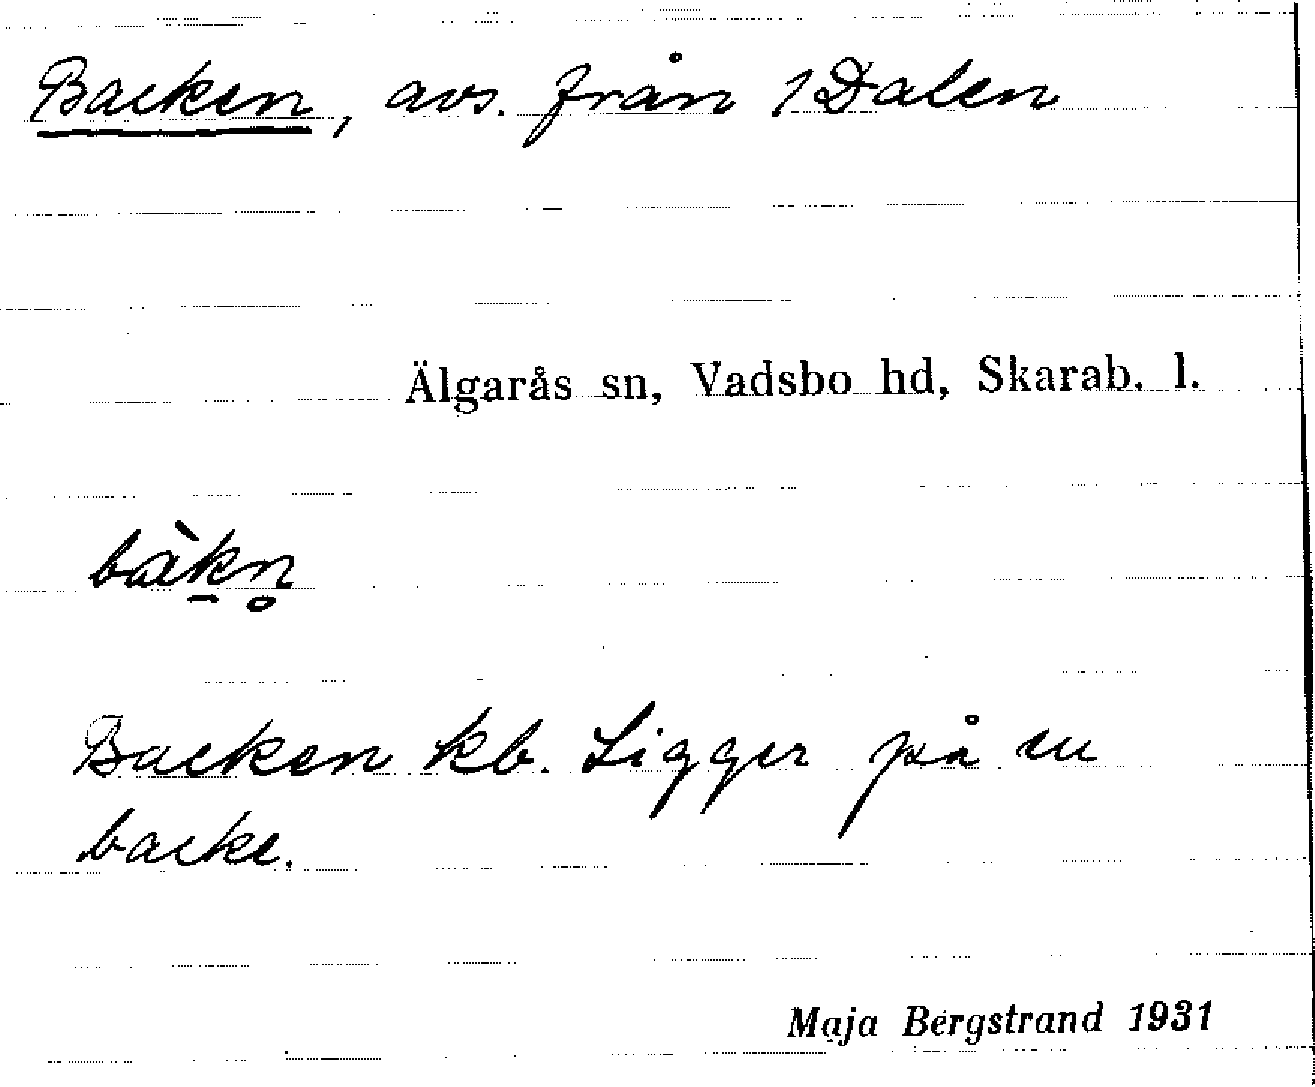 Backen, avs. från 1 Dalen
Älgarås sn, Vadsbo hd, Skarab. l.
bàk̠n̥
Backen kb. Ligger på en
backe.
Maja Bergstrand 1931